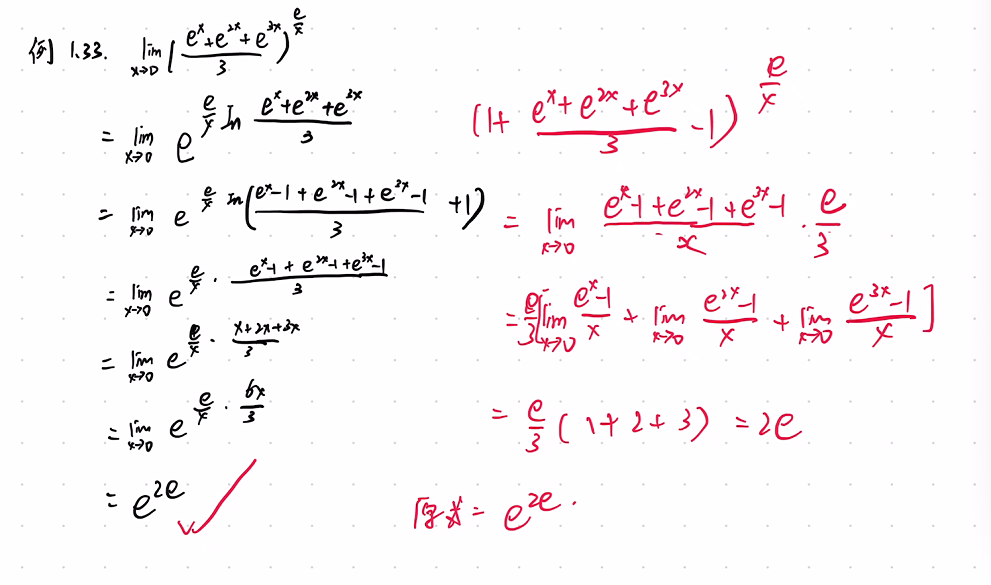 例 1.33. lim_{x→0} (\frac{e^x+e^{2x}+e^{3x}}{3})^{\frac{e}{x}}
= lim_{x→0} e^{\frac{e}{x} ln \frac{e^x+e^{2x}+e^{3x}}{3}}
= lim_{x→0} e^{\frac{e}{x} ln(\frac{e^x-1+e^{2x}-1+e^{3x}-1}{3}+1)}
= lim_{x→0} e^{\frac{e}{x} · \frac{e^x-1+e^{2x}-1+e^{3x}-1}{3}}
= lim_{x→0} e^{\frac{e}{x} · \frac{x+2x+3x}{3}}
= lim_{x→0} e^{\frac{e}{x} · \frac{6x}{3}}
= e^{2e} ✓
(1+\frac{e^x+e^{2x}+e^{3x}}{3}-1)^{\frac{e}{x}}
= lim_{x→0} \frac{e^x-1+e^{2x}-1+e^{3x}-1}{x} · \frac{e}{3}
= \frac{e}{3}[lim_{x→0} \frac{e^x-1}{x} + lim_{x→0} \frac{e^{2x}-1}{x} + lim_{x→0} \frac{e^{3x}-1}{x}]
= \frac{e}{3}(1+2+3) = 2e
原式 = e^{2e}.